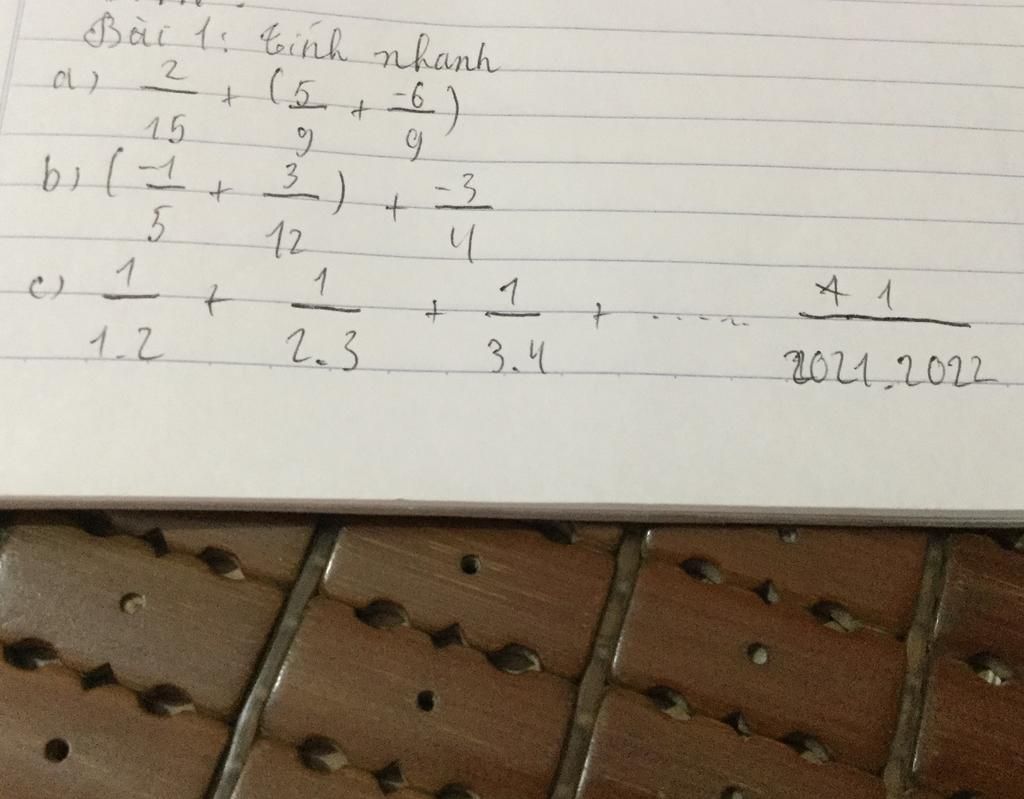 Bài 1: tính nhanh
a) 2/15 + (5/9 + -6/9)
b) (-1/5 + 3/12) + -3/4
c) 1/1.2 + 1/2.3 + 1/3.4 + ...... 1/2021.2022